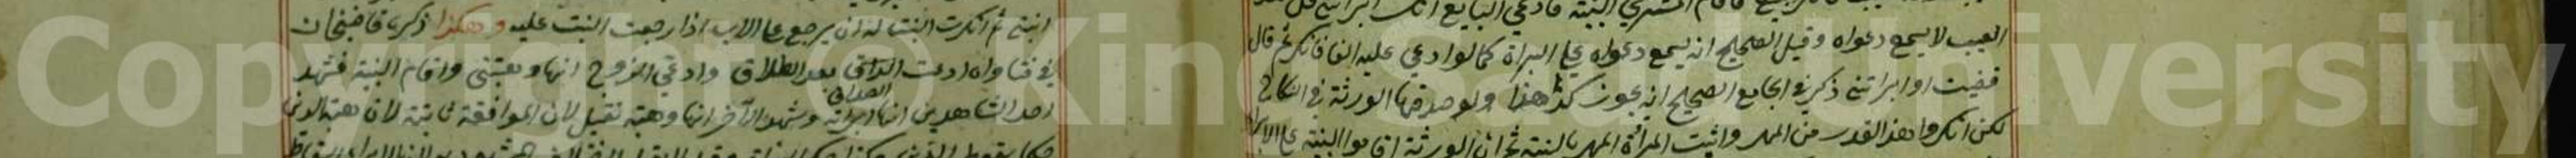 العيب لا يسمع دعواه وقيل الصحيح انه يسمع دعواه على البراة كما لو ادعى عليه الفا فانكر ثم قال
قضيت او ابراتنى ذكر فى الجامع الصحيح انه يجوز كذا هذا ولو صدقها الورثة فى النكاح
لكن انكروا هذا القدر من المهر واثبت المراة المهر بالبينة ثم ان الورثة اقاموا البينة على الابراء
ابنته ثم انكرت البنت له ان يرجع على الاب اذا رجعت البنت عليه وهكذا ذكر قاضيخان
فى فتاواه ادعت الصداق بعد الطلاق وادعى الزوج انها وهبتنى واقام البينة فشهد
احد الشاهدين انها ابراته وشهد الآخر انها وهبته تقبل لان الموافقة ثابتة لان هبة الدين
Copyright © King Saud University